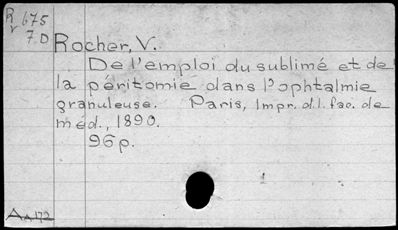 R
v 675
7.D
Rocher, V.
De l'emploi du sublimé et de
la péritomie dans l'ophtalmie
granuleuse. Paris, Impr. d. l. fac. de
méd., 1890.
96p.
AA172